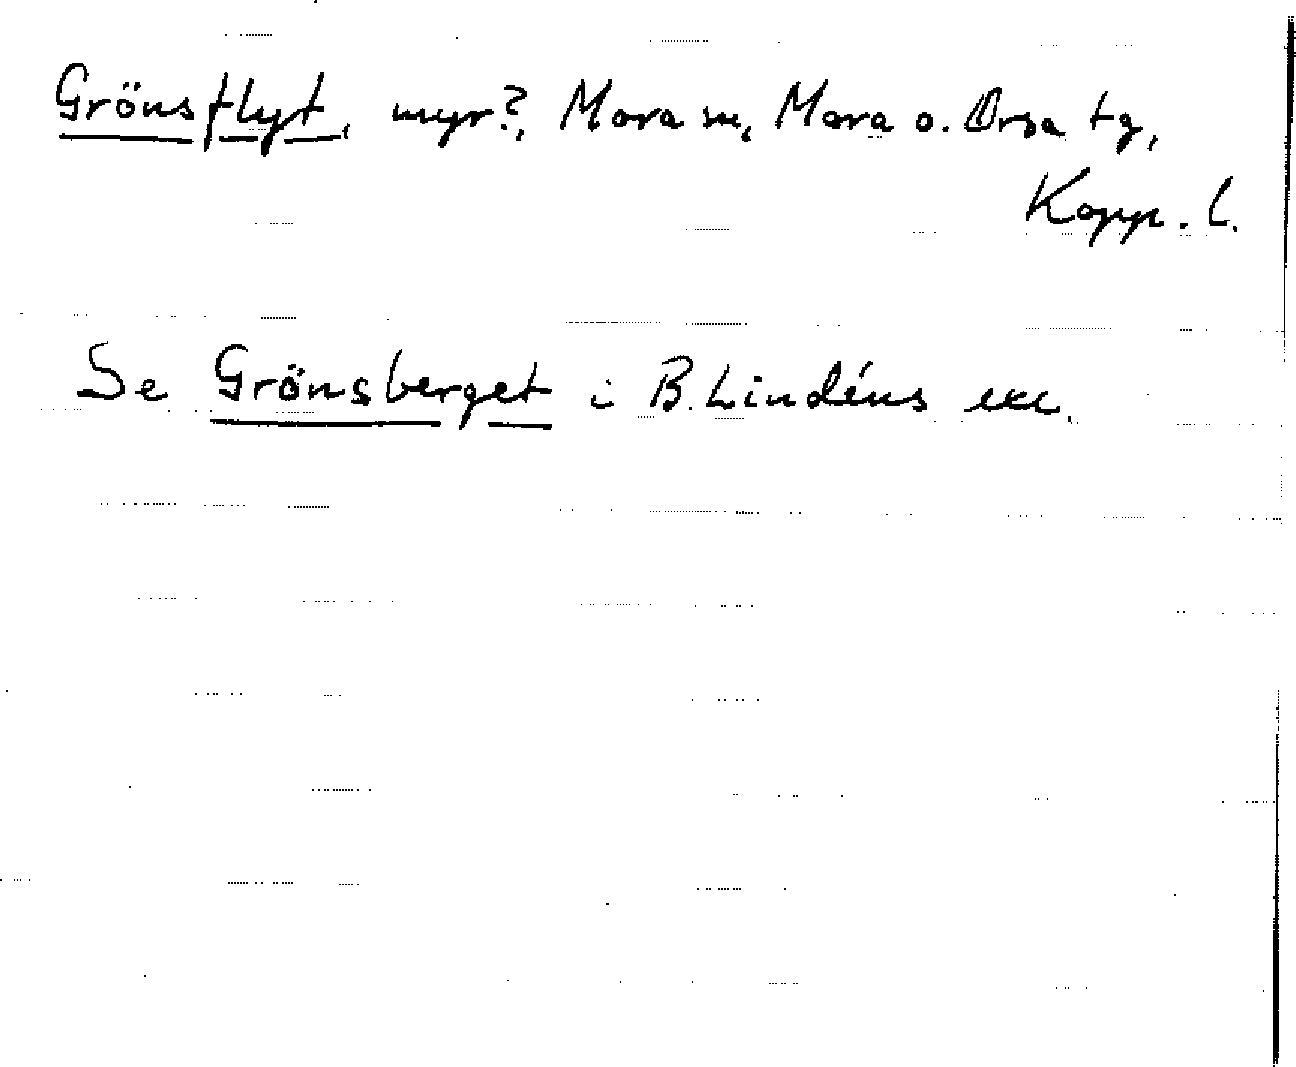 Grönsflyt, myr?, Mora sn, Mora o. Orsa tg,
Kopp. l.
Se Grönsberget i B. Lindéns exc.